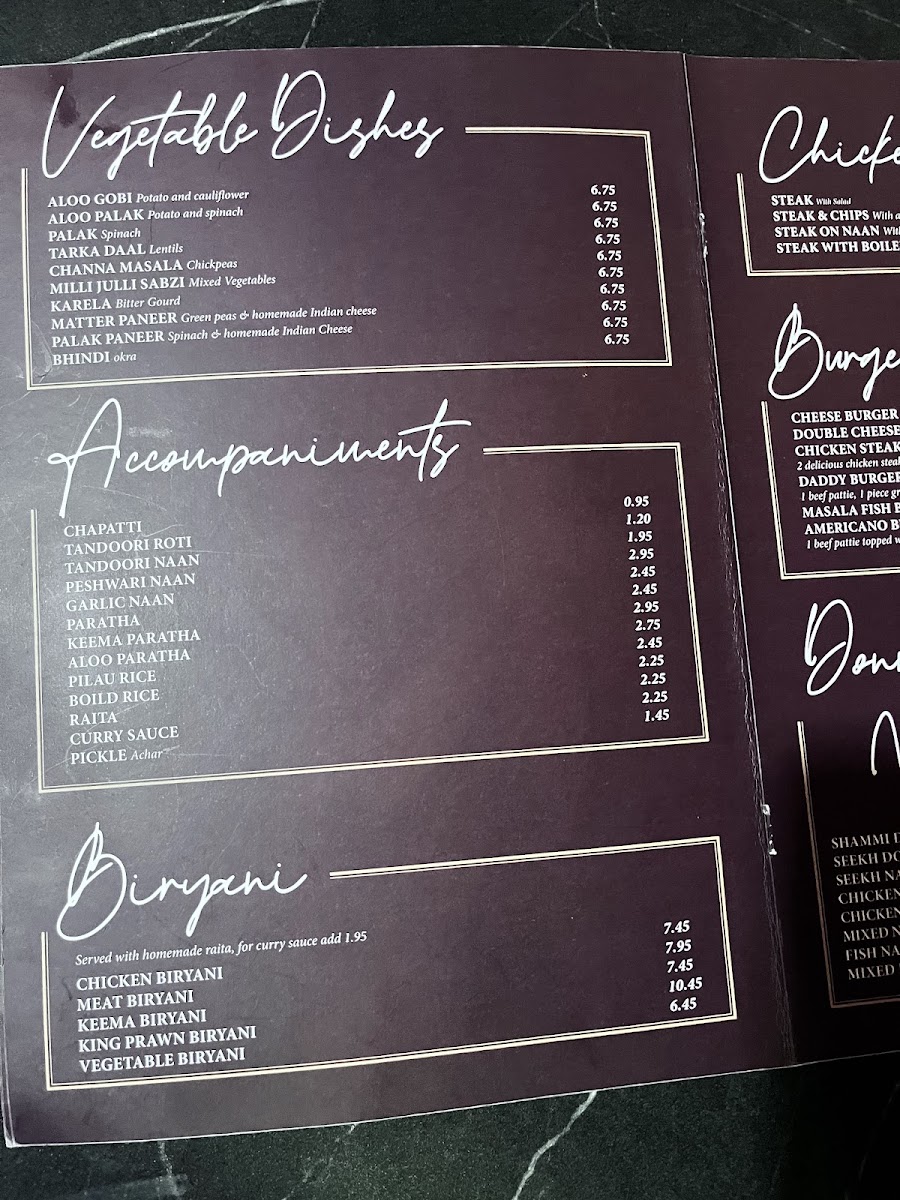 Vegetable Dishes
ALOO GOBI Potato and cauliflower 6.75
ALOO PALAK Potato and spinach 6.75
PALAK Spinach 6.75
TARKA DAAL Lentils 6.75
CHANNA MASALA Chickpeas 6.75
MILLI JULLI SABZI Mixed Vegetables 6.75
KARELA Bitter Gourd 6.75
MATTER PANEER Green peas & homemade Indian cheese 6.75
PALAK PANEER Spinach & homemade Indian Cheese 6.75
BHINDI okra 6.75
Accompaniments
CHAPATTI 0.95
TANDOORI ROTI 1.20
TANDOORI NAAN 1.95
PESHWARI NAAN 2.95
GARLIC NAAN 2.45
PARATHA 2.45
KEEMA PARATHA 2.95
ALOO PARATHA 2.75
PILAU RICE 2.45
BOILD RICE 2.25
RAITA 2.25
CURRY SAUCE 2.25
PICKLE Achar 1.45
Biryani
Served with homemade raita, for curry sauce add 1.95
CHICKEN BIRYANI 7.45
MEAT BIRYANI 7.95
KEEMA BIRYANI 7.45
KING PRAWN BIRYANI 10.45
VEGETABLE BIRYANI 6.45
Chicke
STEAK With Salad
STEAK & CHIPS With a
STEAK ON NAAN With
STEAK WITH BOILE
Burge
CHEESE BURGER
DOUBLE CHEESE
CHICKEN STEAK
2 delicious chicken steak
DADDY BURGER
1 beef pattie, 1 piece gr
MASALA FISH B
AMERICANO B
1 beef pattie topped w
Don
SHAMMI
SEEKH DO
SEEKH NA
CHICKEN
CHICKEN
MIXED N
FISH NA
MIXED